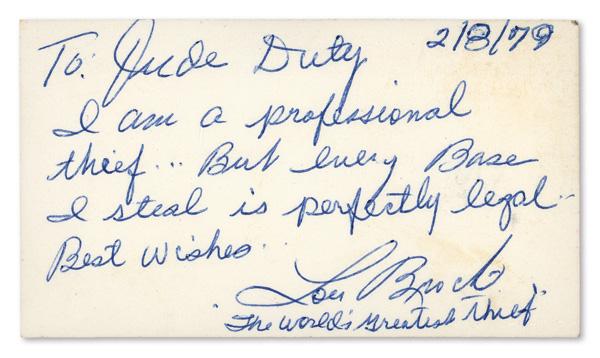 To: Jude Duty 2/8/79
I am a professional
thief... But every Base
I steal is perfectly legal..
Best Wishes..
Lou Brock
"The World's Greatest Thief"